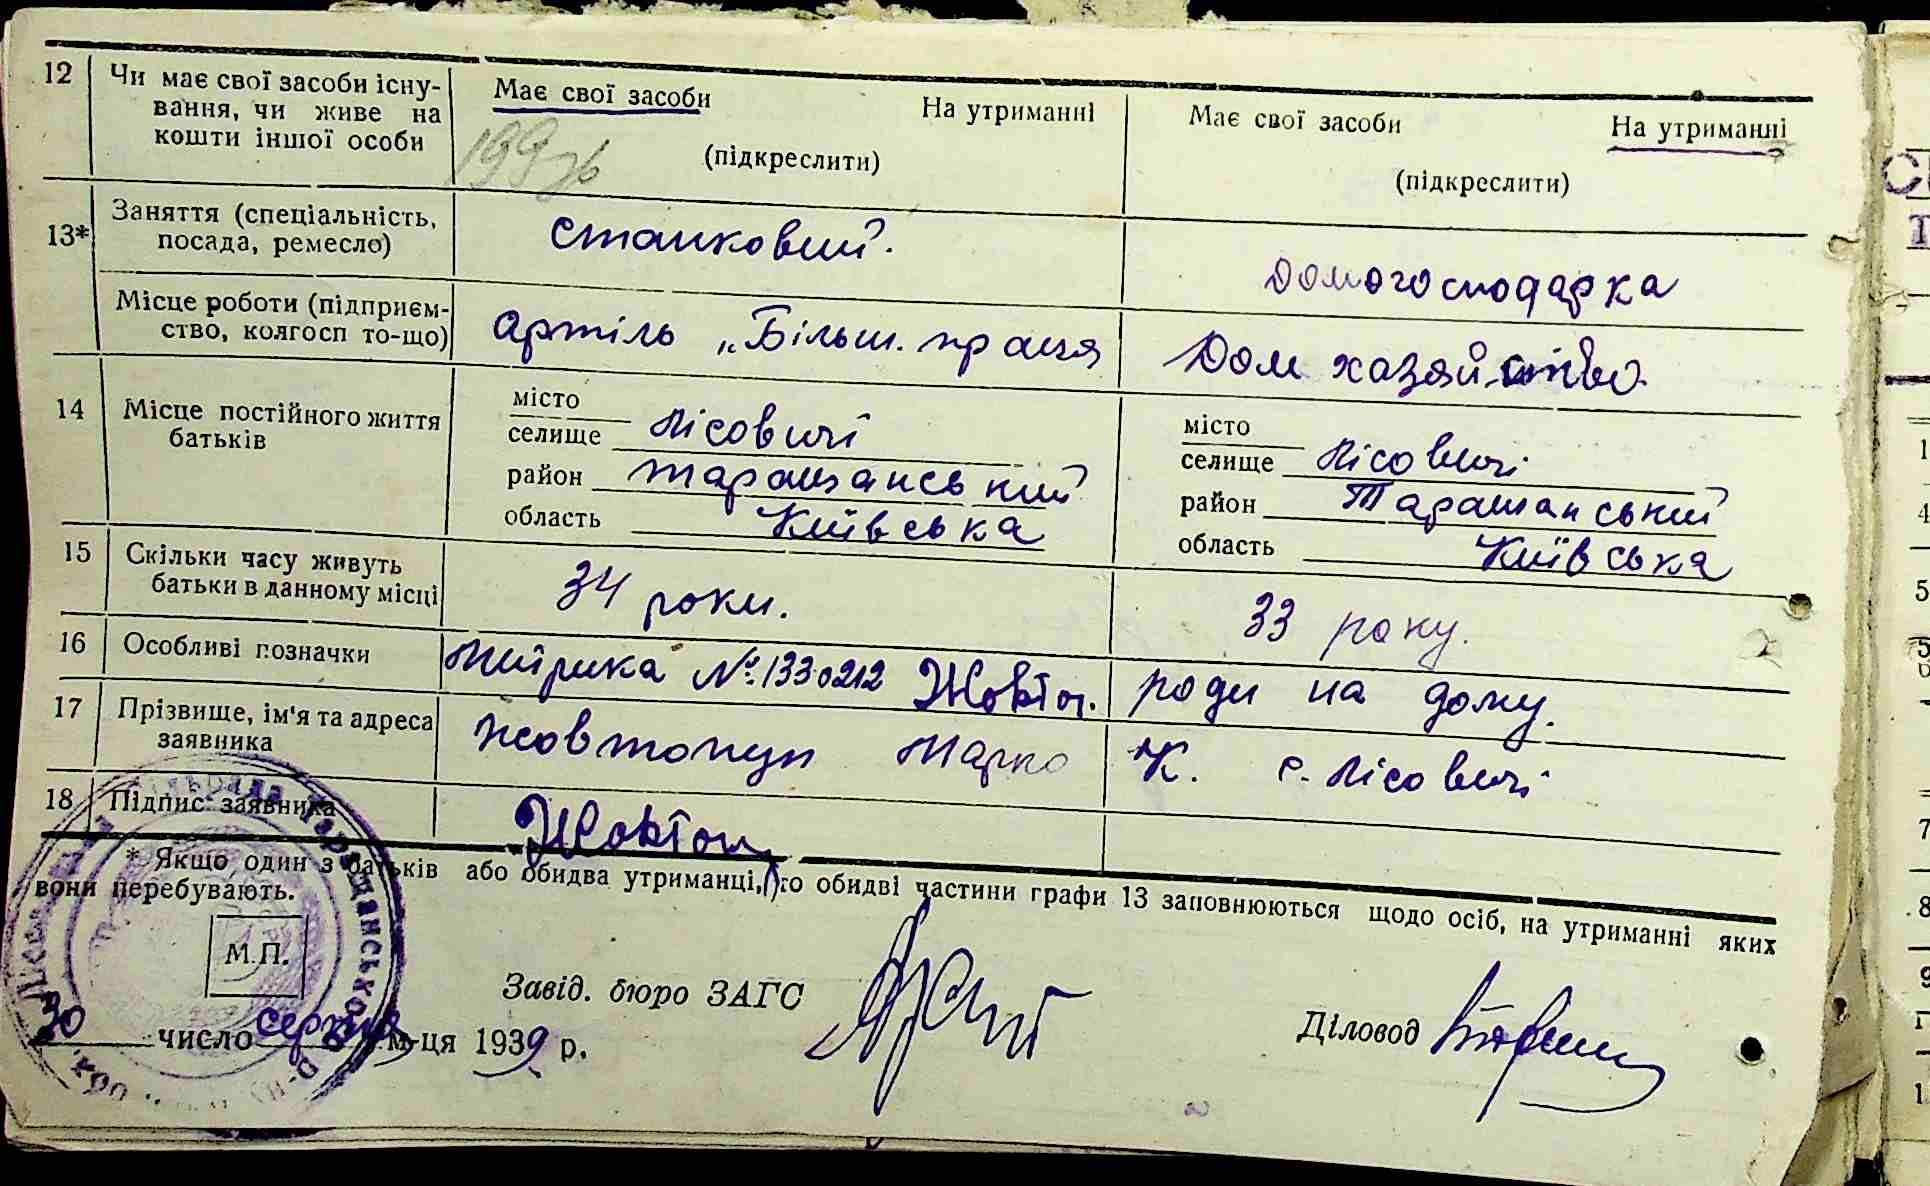 12 Чи має свої засоби існу-
вання, чи живе на
кошти іншої особи
Має свої засоби На утриманні
(підкреслити)
Має свої засоби На утриманні
(підкреслити)
13* Заняття (спеціальність,
посада, ремесло)
станковий.
Домогосподарка
Місце роботи (підприєм-
ство, колгосп то-що)
артіль „Більш. праця
Дом хазяйство
14 Місце постійного життя
батьків
місто
селище Лісовичі
район Таращанський
область Київська
місто
селище Лісовичі
район Таращанський
область Київська
15 Скільки часу живуть
батьки в данному місці
34 роки.
33 року.
16 Особливі позначки
Митрика №:1330212 Жовтоп. роди на дому.
17 Прізвище, ім'я та адреса
заявника
Жовтопуп Марко К. с. Лісовичі
18 Підпис заявника
Жовтоп
* Якщо один з батьків або обидва утриманці, то обидві частини графи 13 заповнюються щодо осіб, на утриманні яких
вони перебувають.
М.П.
Завід. бюро ЗАГС
Діловод
30 число серпня м-ця 1939 р.